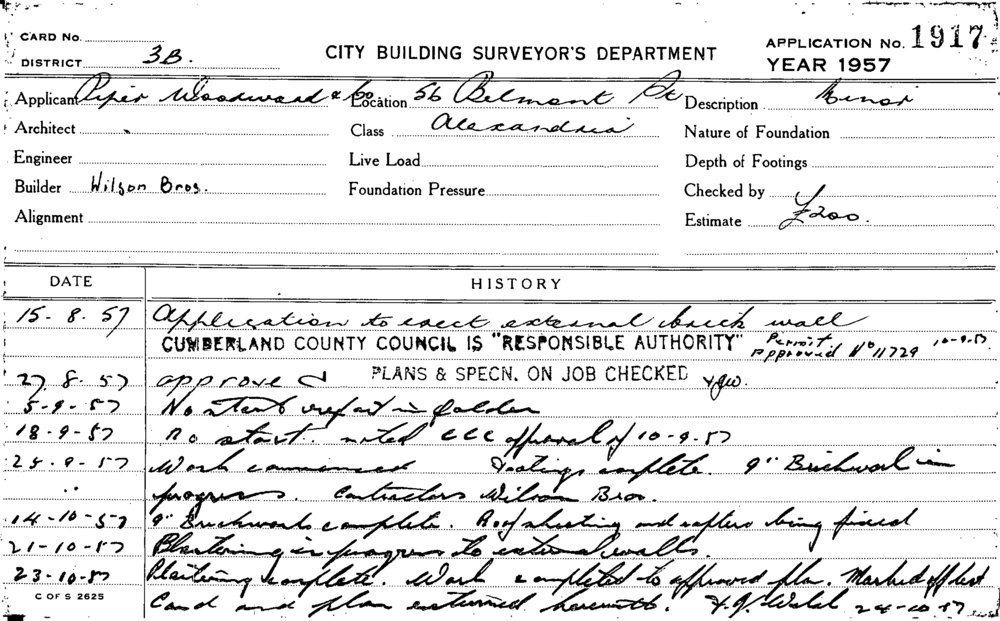 CARD No.
DISTRICT 3B.
CITY BUILDING SURVEYOR'S DEPARTMENT
APPLICATION No. 1917
YEAR 1957
Applicant Piper Woodward & Co Location 56 Belmont St Description Minor
Architect Class Alexandria Nature of Foundation
Engineer Live Load Depth of Footings
Builder Wilson Bros. Foundation Pressure Checked by
Alignment Estimate £200.
DATE HISTORY
15-8-57 Application to erect external brick wall
CUMBERLAND COUNTY COUNCIL IS "RESPONSIBLE AUTHORITY" Permit approved No 11729 10-9-57
27-8-57 approved PLANS & SPECN. ON JOB CHECKED
5-9-57 No start report in folder
18-9-57 No start. noted CCC approval of 10-9-57
25-9-57 Work commenced Footings complete. 9" Brickwork in
" progress. Contractors Wilson Bros.
14-10-57 9" Brickwork complete. Roof sheeting and rafters being fixed
21-10-57 Plastering in progress to external walls.
23-10-57 Plastering complete. Work completed to approved plan. Marked off list
C OF S 2625
Card and plan returned herewith. 24-10-57